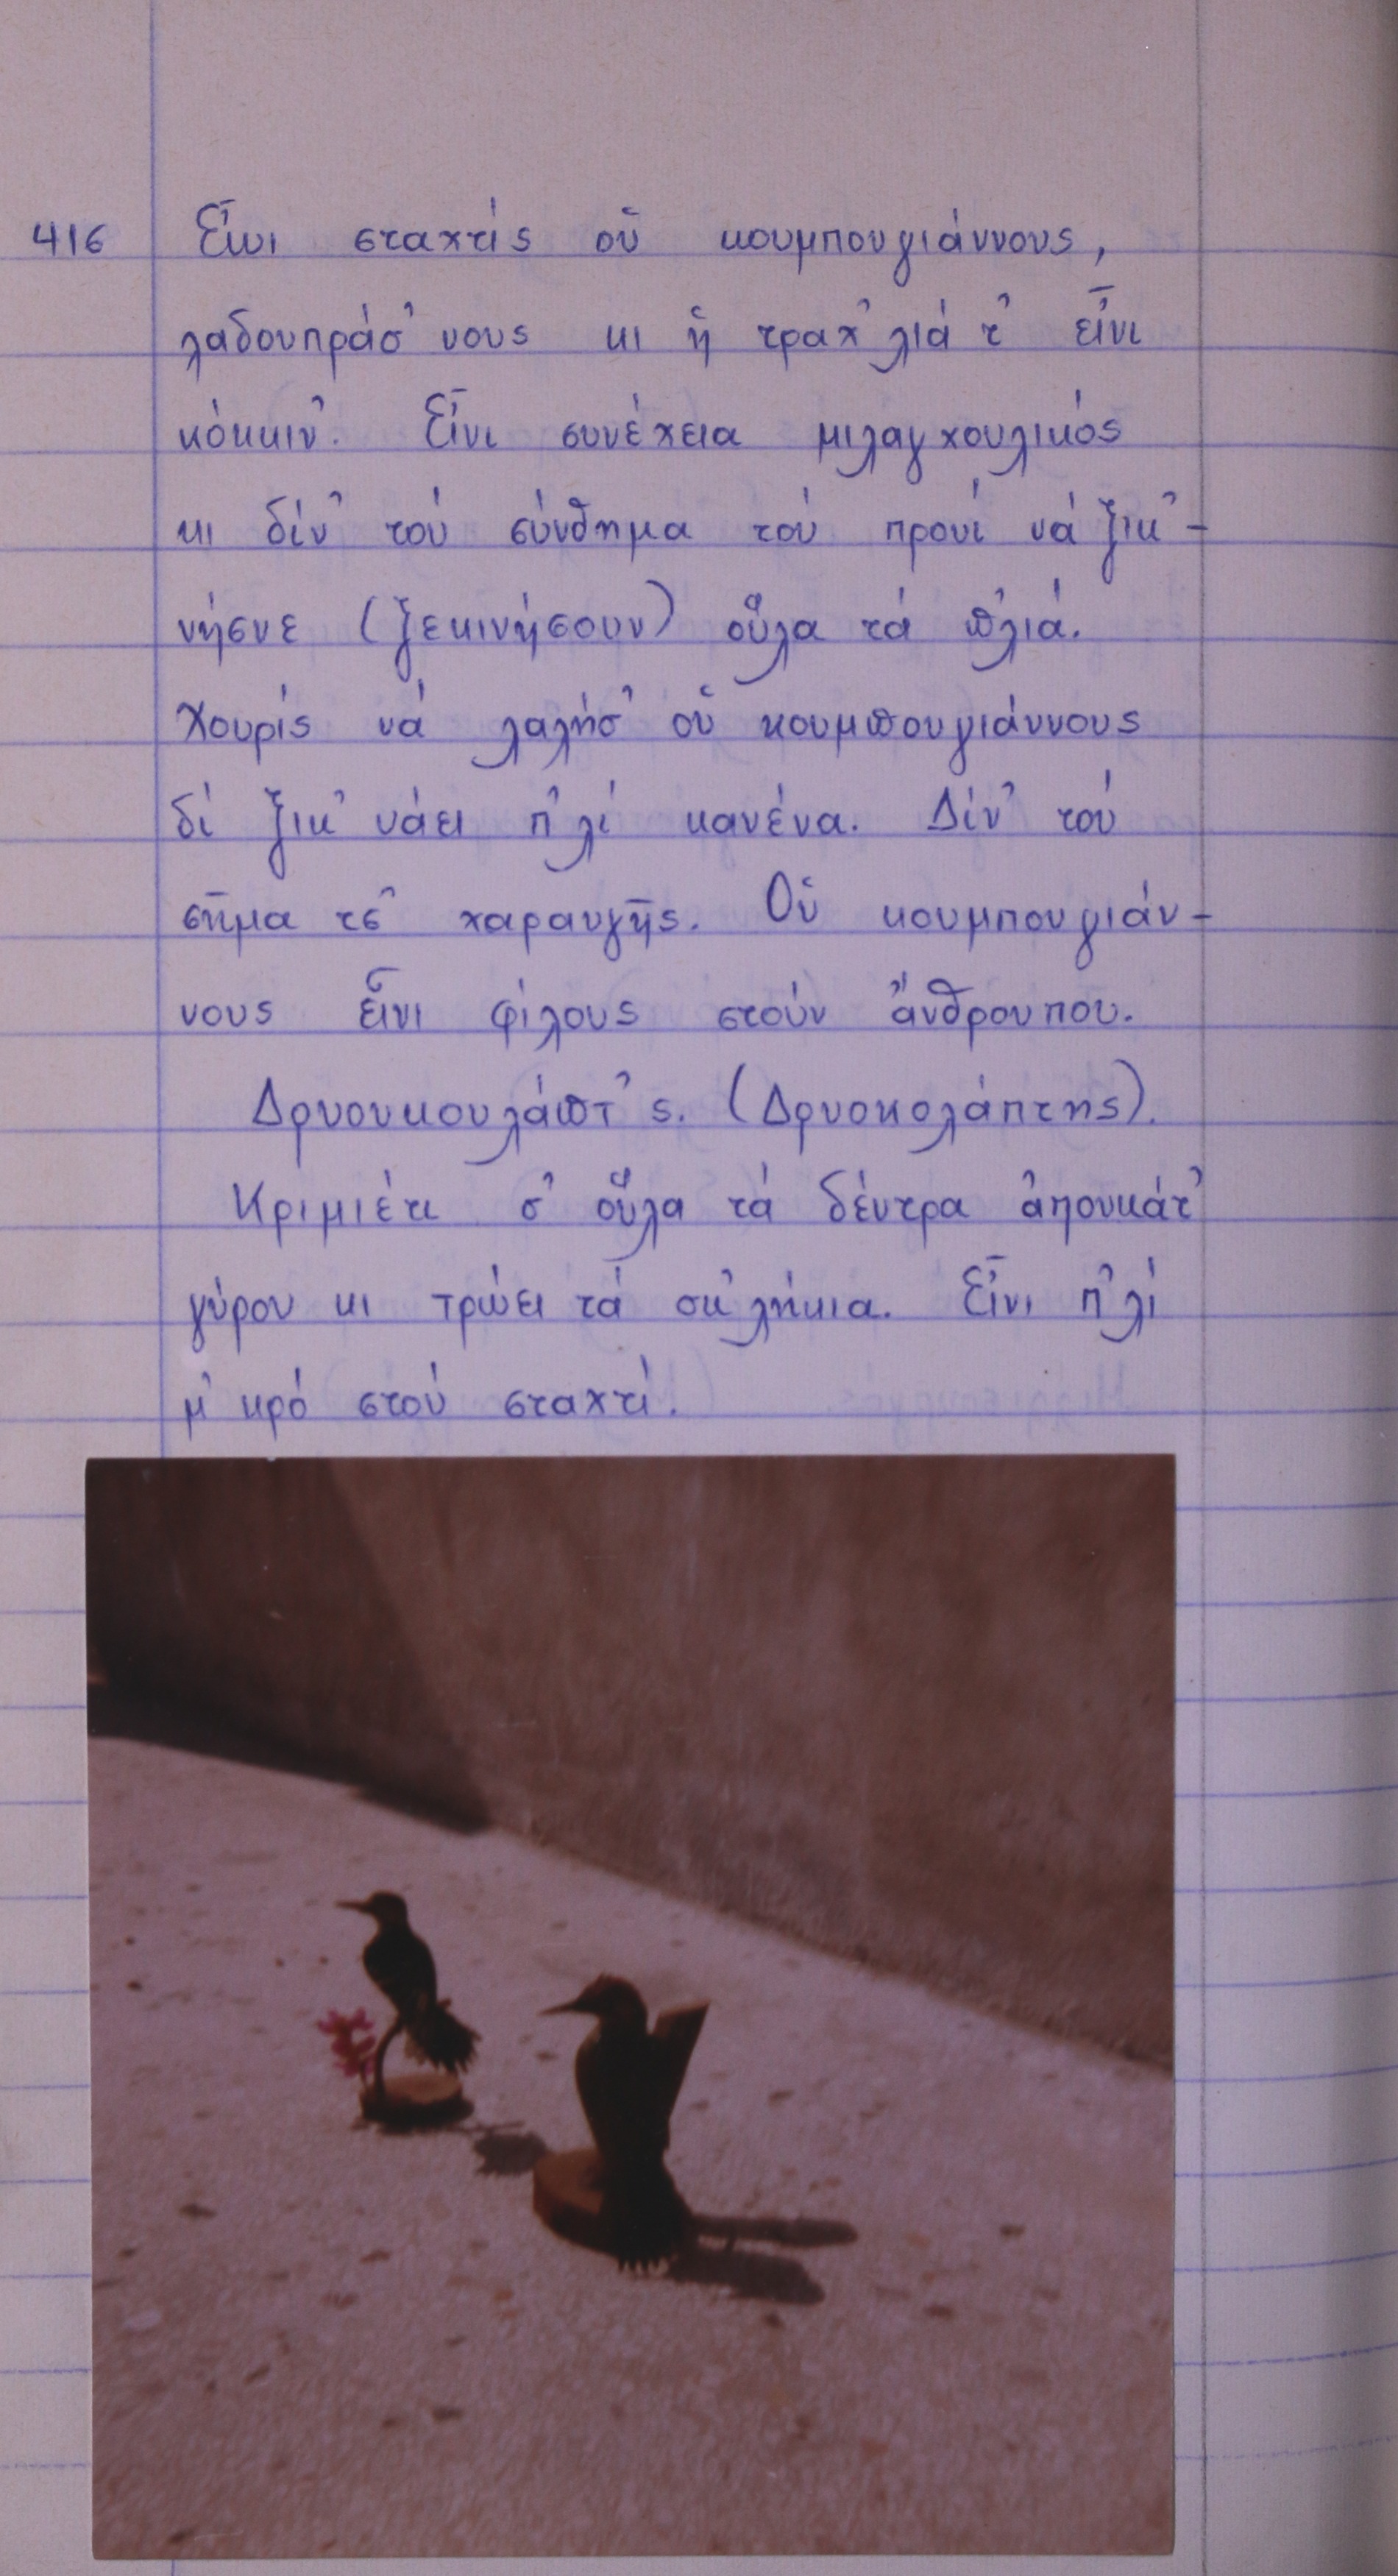 416 Εἶνι σταχτίς οὑ κουμπουγιάννους,
λαδουπράσ' νους κι ἡ τραχ' λιά τ' εἶνι
κόκκιν'. Εἶνι συνέχεια μιλαγχουλικός
κι δίν' τού σύνθημα τού προυί νά ξικ'-
νήσνε (ξεκινήσουν) οὗλα τά π'λιά.
Χουρίς νά λαλήσ' οὑ κουμπουγιάννους
δί ξικ' νάει π'λί κανένα. Δίν' τού
σῆμα τσ' χαραυγῆς. Οὑ κουμπουγιάν-
νους εἶνι φίλους στούν ἄνθρουπου.
Δρυουκουλάπτ' ς. (Δρυοκολάπτης).
Κριμιέτι σ' οὗλα τά δέντρα ἀπουκάτ'
γύρου κι τρώει τά σκ' λήκια. Εἶνι π'λί
μ' κρό στού σταχτί.